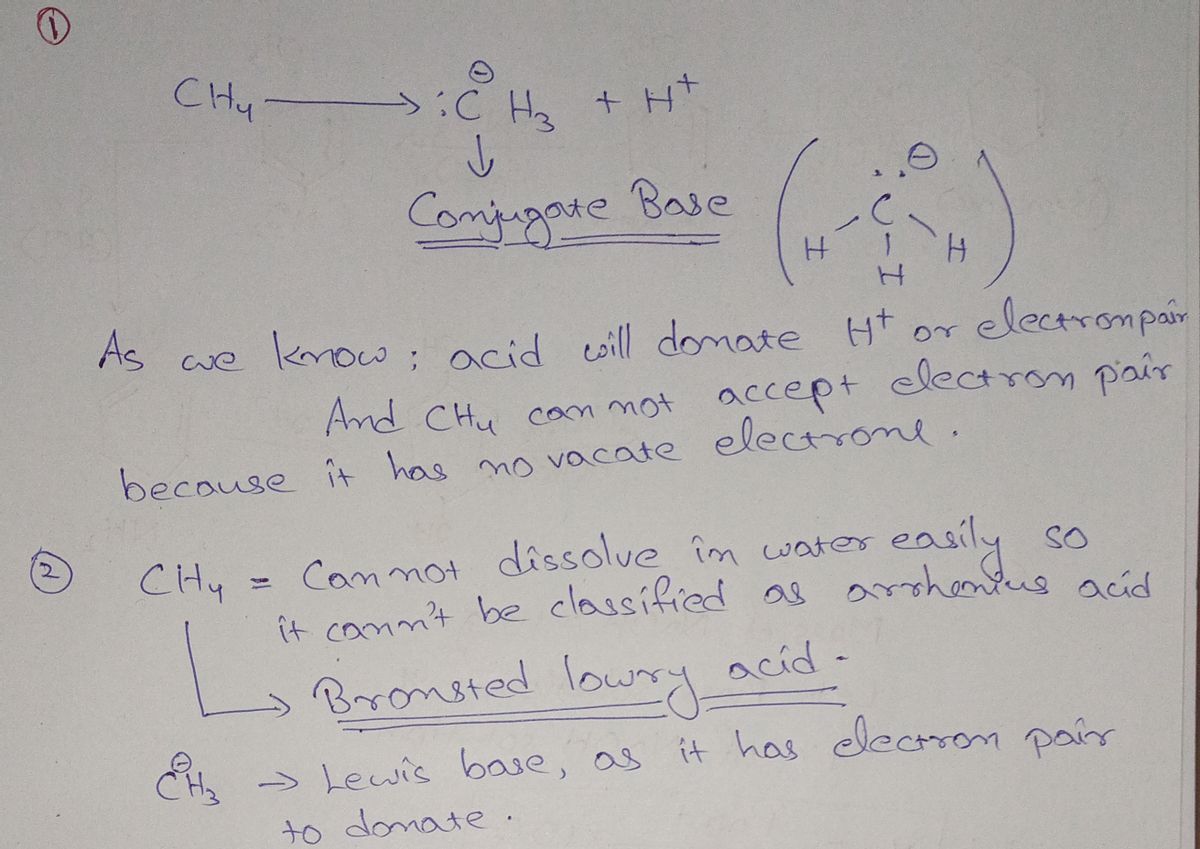 ①
CH₄ → :C⊖H₃ + H⁺
↓
Conjugate Base
..⊖
C
H H
H
As we know; acid will donate H⁺ or electronpair
And CH₄ can not accept electron pair
because it has no vacate electrone.
② CH₄ = Can not dissolve in water easily so
it cann't be classified as arrhenius acid
→ Bronsted lowry acid.
C⊖H₃ → Lewis base, as it has electron pair
to donate.